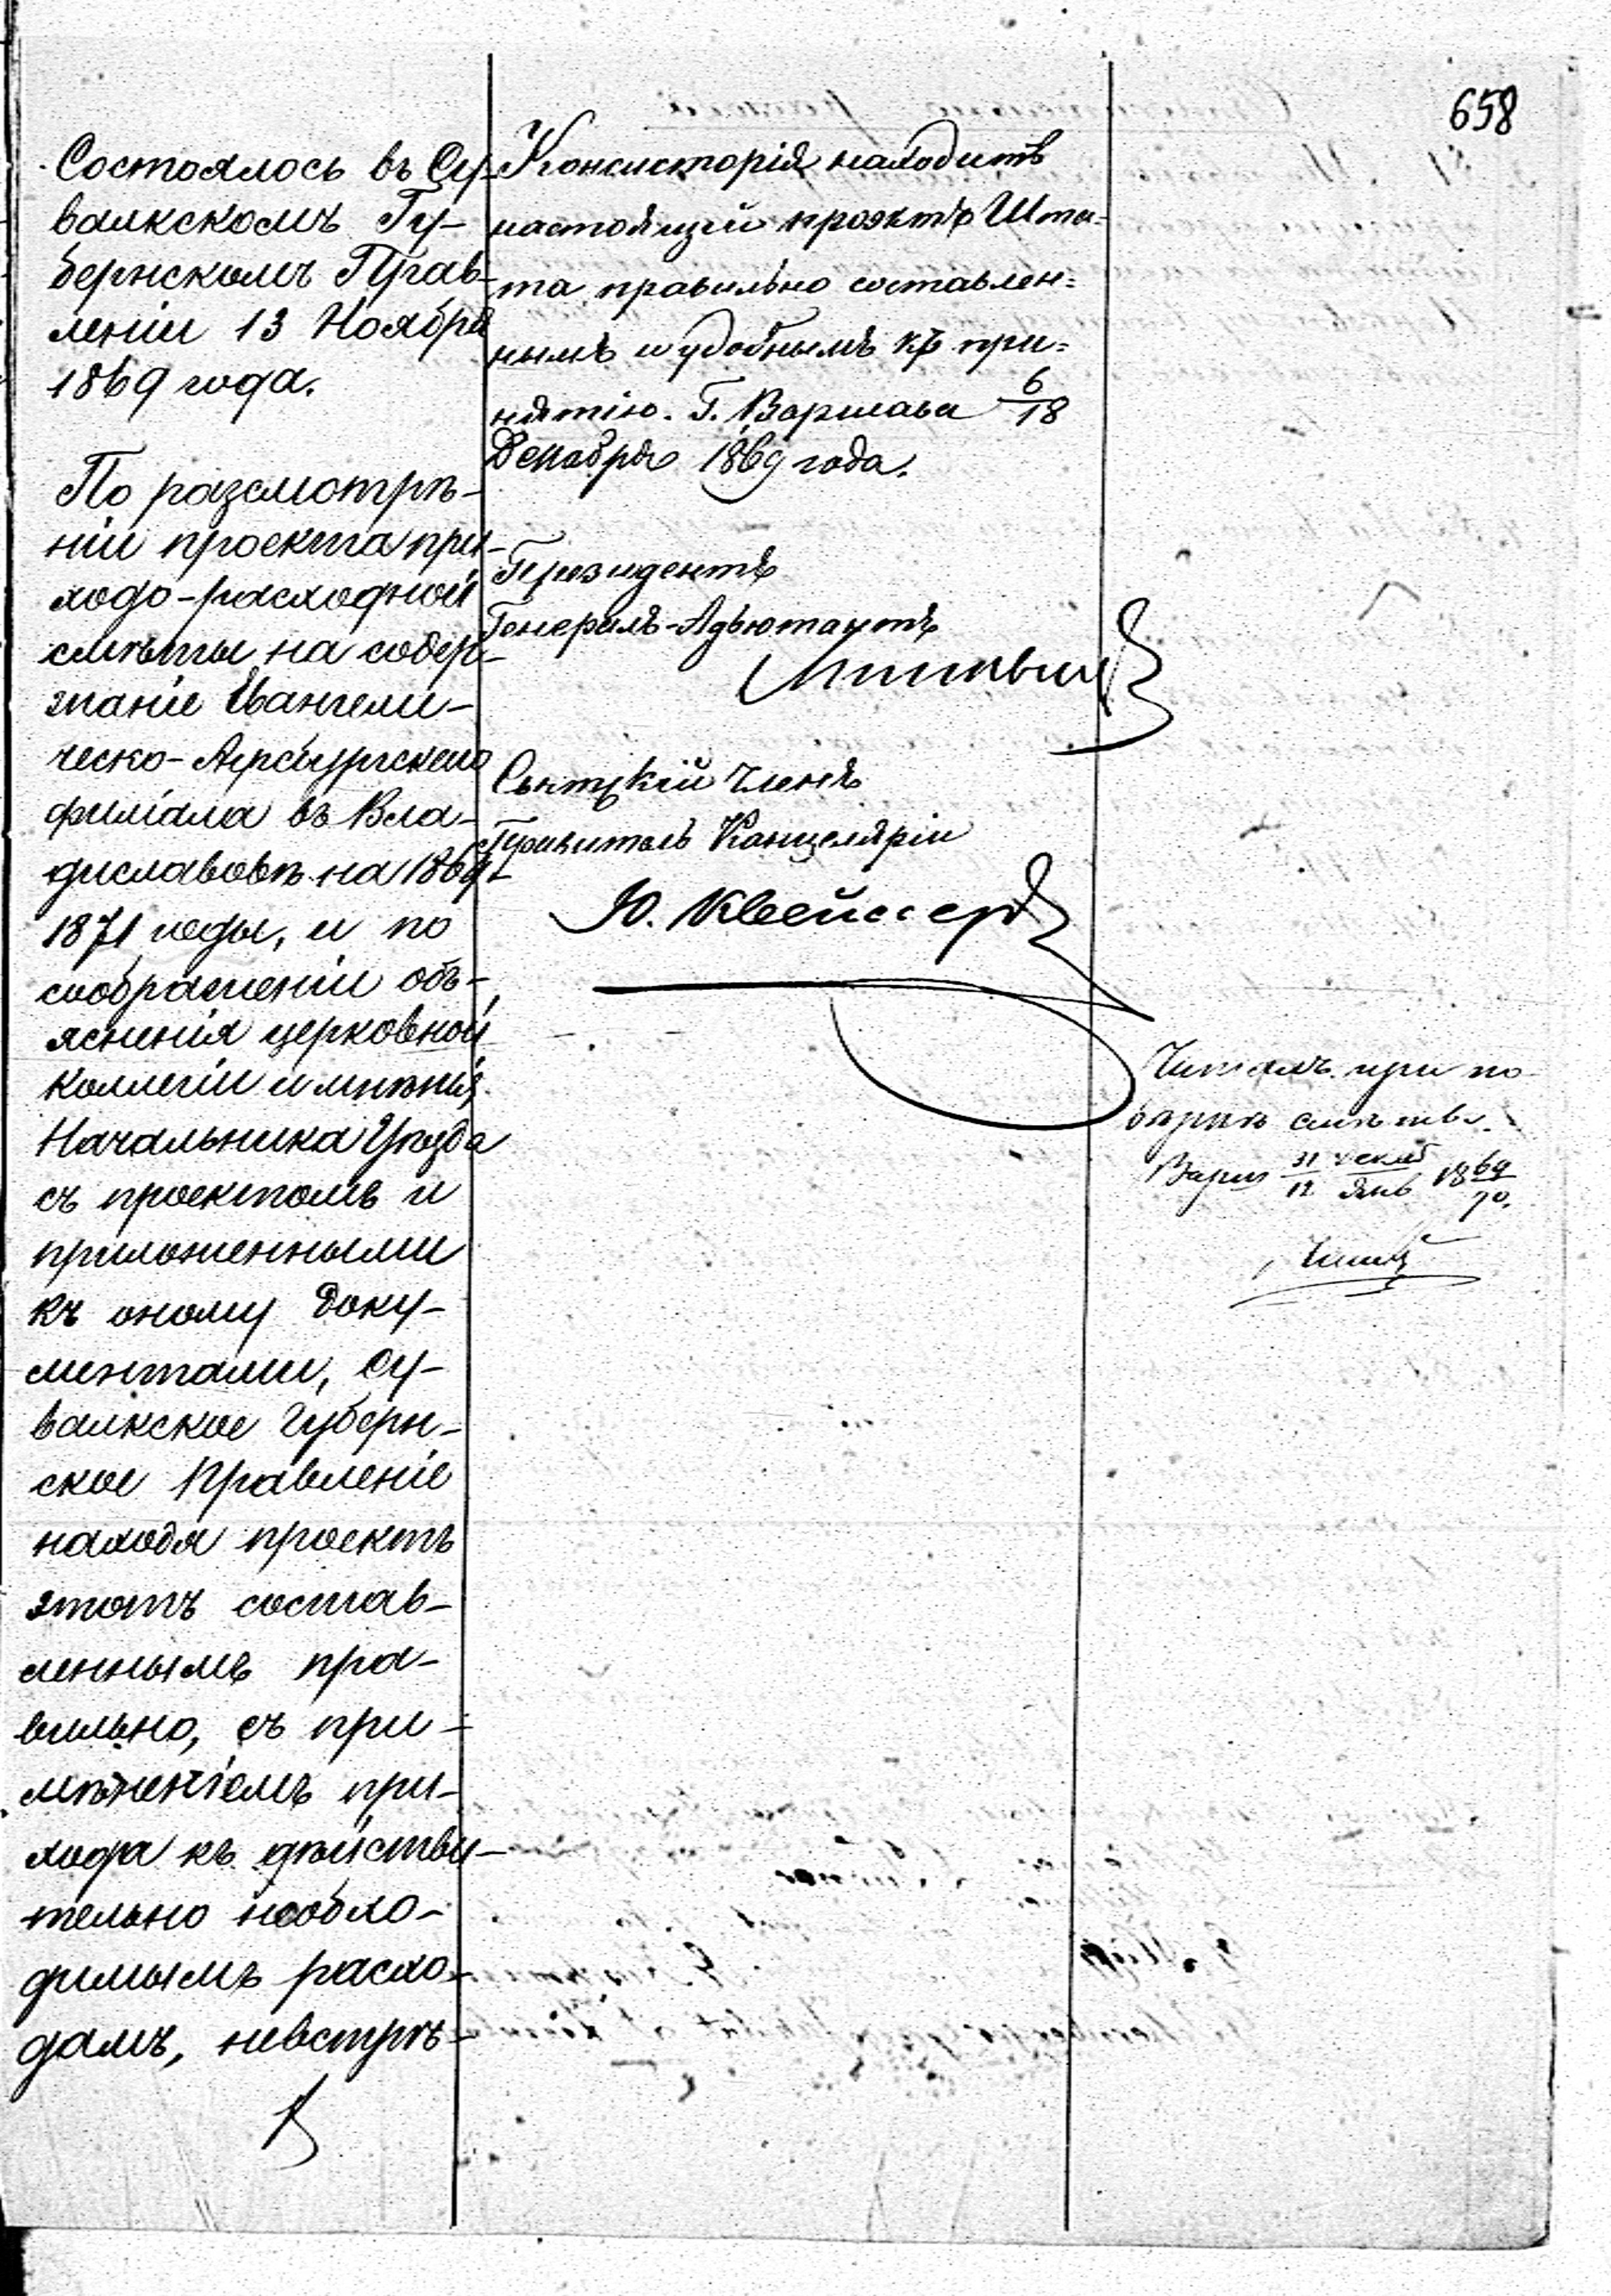 658
Состоялось въ Су-
валкскомъ Гу-
бернскомъ Прав-
леніи 13 Ноября
1869 года.
По разсмотрѣ-
ніи проекта при-
ходо-расходной
смѣты на содер-
жаніе Евангели-
ческо-Аугсбургскаго
филіала въ Вла-
диславовѣ на 1869/
1871 годы, и по
соображеніи объ-
ясненія церковной
коллегіи и мнѣнія
Начальника Уѣзда
съ проектомъ и
приложенными
къ оному доку-
ментами, Су-
валкское Губерн-
ское Правленіе
находя проектъ
этотъ состав-
леннымъ пра-
вильно, съ при-
мѣненіемъ при-
хода къ дѣйстви-
тельно необхо-
димымъ расхо-
дамъ, невстрѣ-
Консисторія находитъ
настоящій проэктъ Шта-
та правильно составлен=
нымъ и удобнымъ къ при=
нятію. Г. Варшава 6/18
Декабря 1869 года.
Президентъ
Генералъ-Адъютантъ
Свѣтскій Членъ
Правитель Канцеляріи
Ю.
Читалъ при по
вѣркѣ смѣты.
Варш 31 Декаб 1869
12 Янв 70.